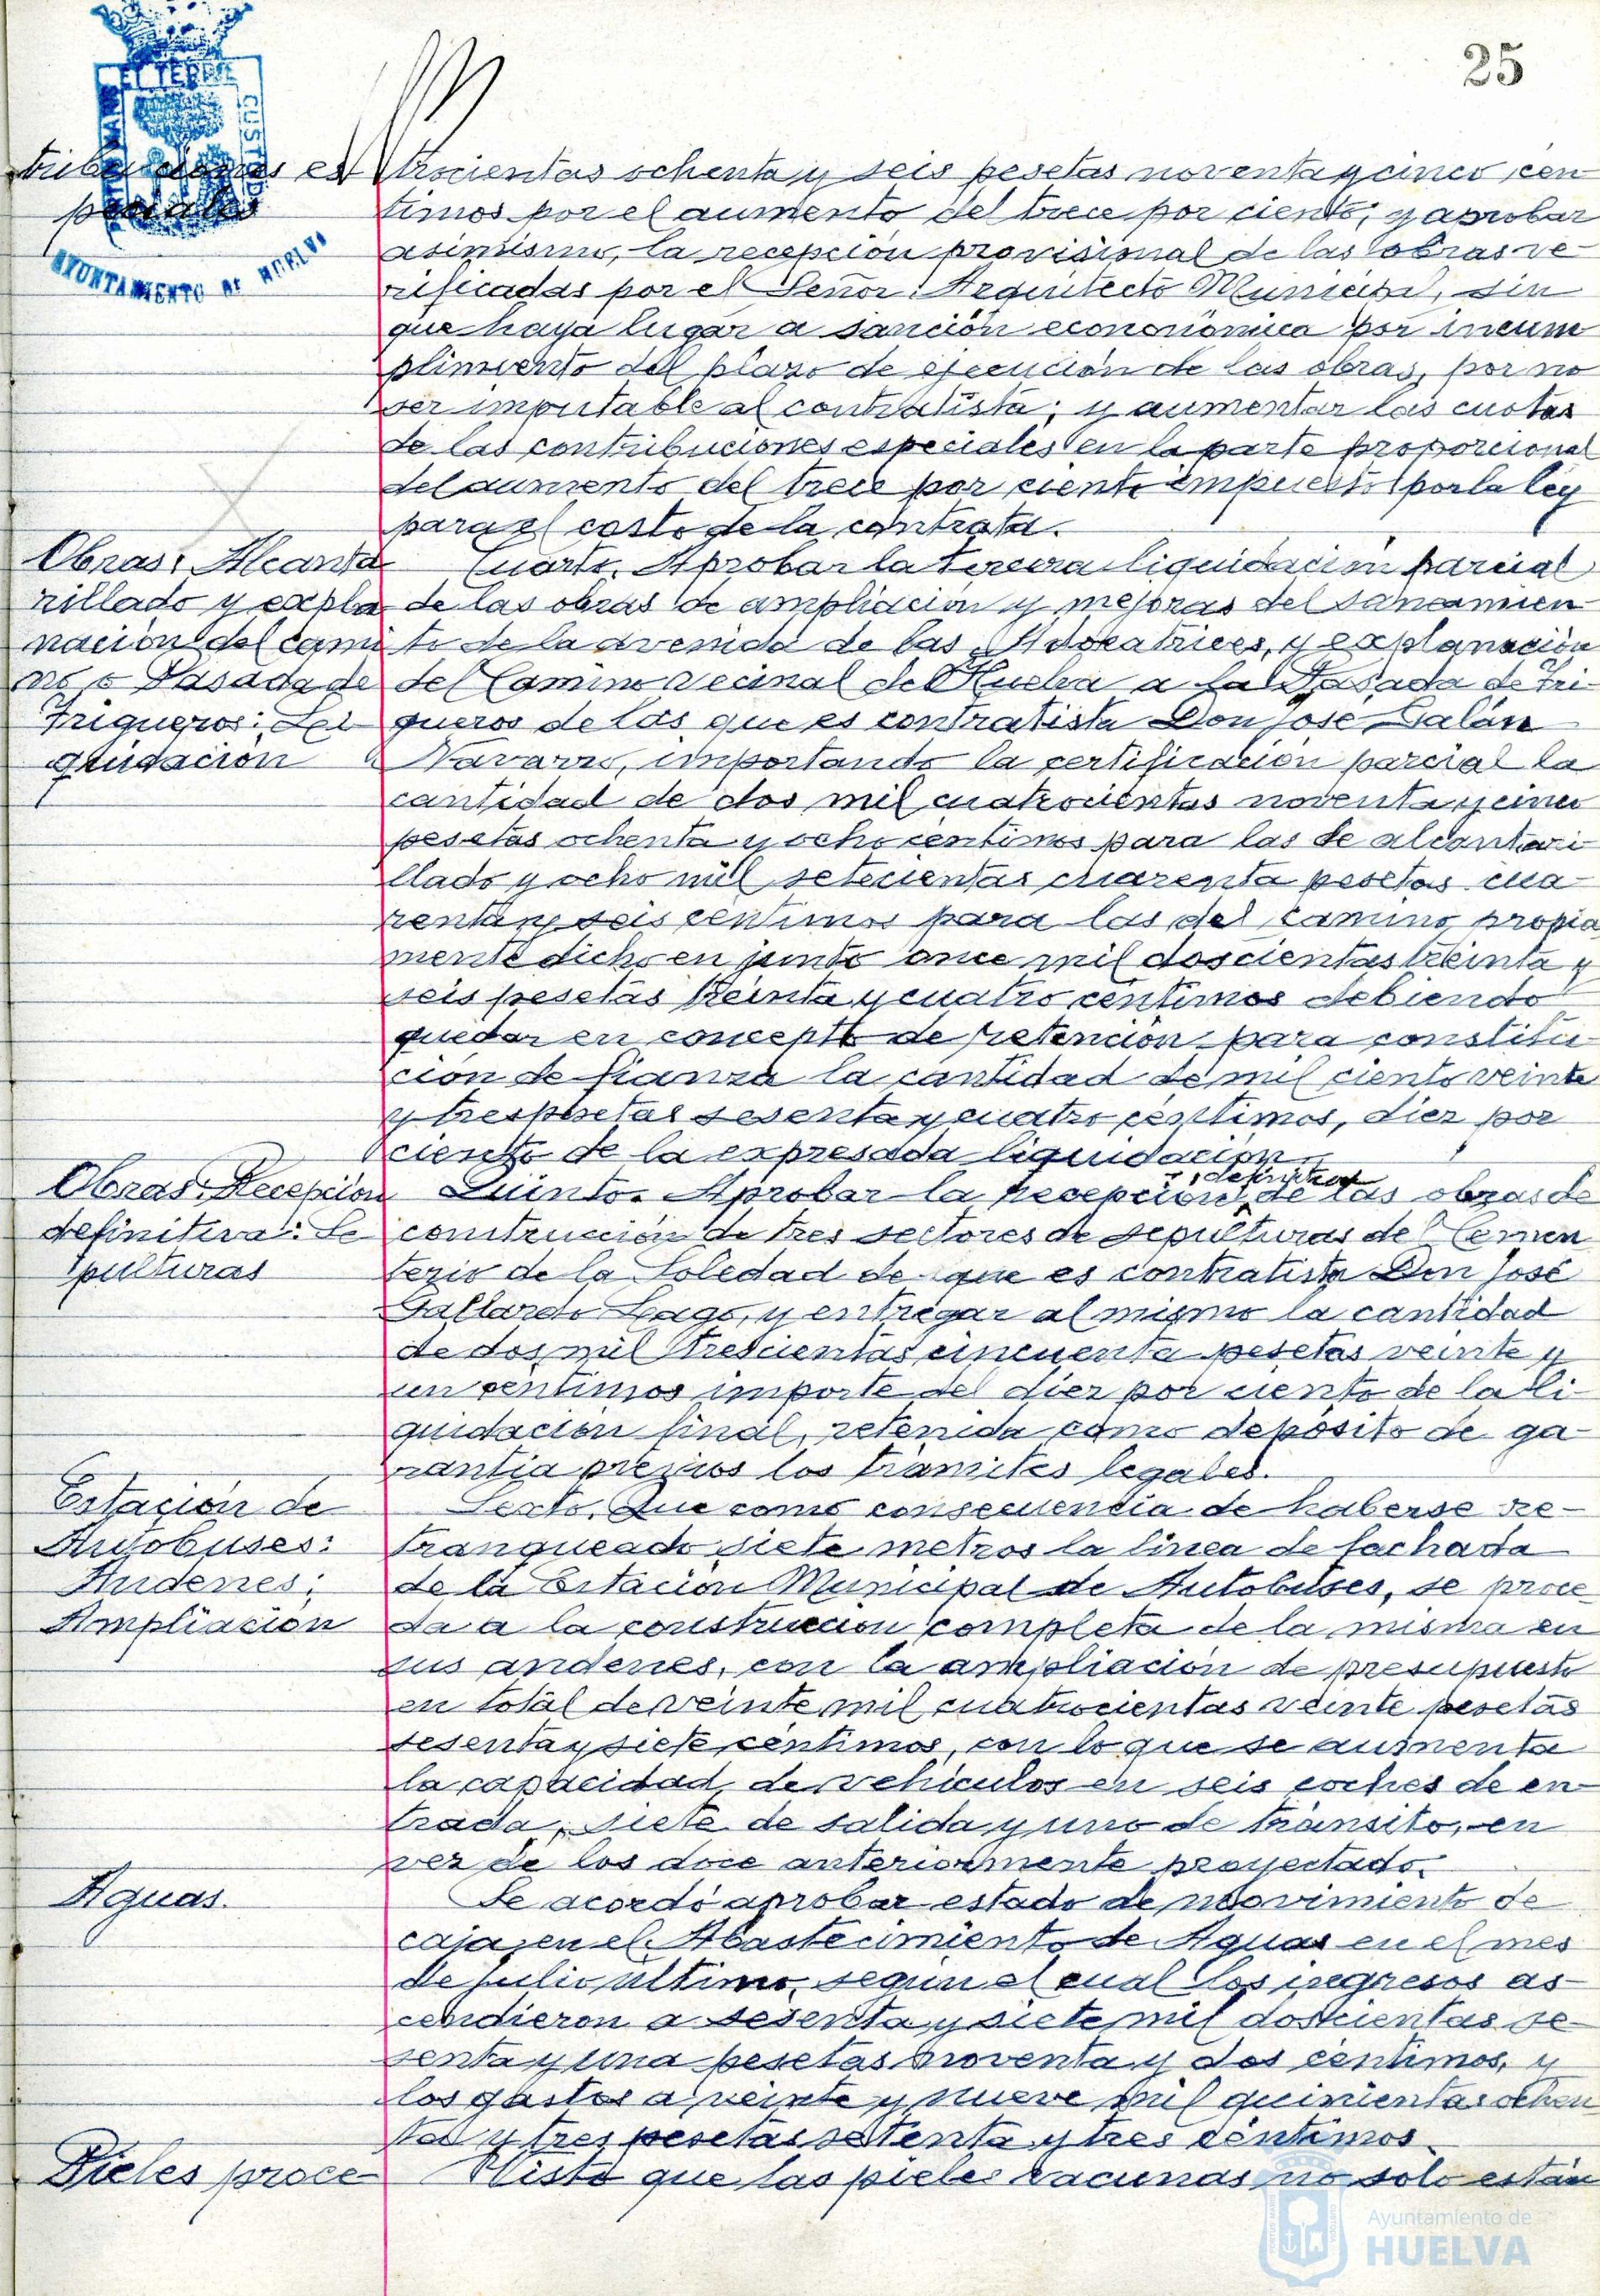 25
PORTUS MARIS ET TERRE CUSTODIA
AYUNTAMIENTO DE HUELVA
tribuciones es
peciales
trocientas ochenta y seis pesetas noventa y cinco cen
timos por el aumento del trece por ciento; y aprobar
asimismo, la recepción provisional de las obras ve-
rificadas por el Señor Arquitecto Municipal, sin
que haya lugar a sanción econonómica por incum
plimiento del plazo de ejecución de las obras, por no
ser imputable al contratista; y aumentar las cuotas
de las contribuciones especiales en la parte proporcional
del aumento del trece por ciento impuesto por la ley
para el costo de la contrata.
Obras: Alcanta
rillado y expla
nación del cami
no o Pasada de
Trigueros: Li
quidación
Cuarto. Aprobar la tercera liquidación parcial
de las obras de ampliación y mejoras del saneamien
to de la avenida de las Adoratrices, y explanación
del Camino vecinal de Huelva a la Pasada de Tri-
gueros de las que es contratista Don José Galán
Navarro, importando la certificación parcial la
cantidad de dos mil cuatrocientas noventa y cinco
pesetas ochenta y ocho centimos para las de alcantari
llado y ocho mil setecientas cuarenta pesetas cua-
renta y seis centimos para las del camino propia
mente dicho en junto once mil doscientas treinta y
seis pesetas treinta y cuatro centimos debiendo
quedar en concepto de retención para constitu
ción de fianza la cantidad de mil ciento veinte
y tres pesetas sesenta y cuatro centimos, diez por
ciento de la expresada liquidación.
Obras: Recepción
definitiva: Se
pulturas
definitiva
Quinto. Aprobar la recepción de las obras de
construcción de tres sectores de sepulturas del Cemen
terio de la Soledad de que es contratista Don José
Gallardo Lago, y entregar al mismo la cantidad
de dos mil trescientas cincuenta pesetas veinte y
un centimos importe del diez por ciento de la li-
quidación final, retenida como depósito de ga-
rantía previos los trámites legales.
Estación de
Autobuses:
Andenes:
Ampliación
Sexto. Que como consecuencia de haberse re-
tranqueado siete metros la linea de fachada
de la Estación Municipal de Autobuses, se proce
da a la construcción completa de la misma en
sus andenes, con la ampliación de presupuesto
en total de veinte mil cuatrocientas veinte pesetas
sesenta y siete céntimos, con lo que se aumenta
la capacidad de vehículos en seis coches de en-
trada, siete de salida y uno de tránsito, en
vez de los doce anteriormente proyectado.
Aguas.
Se acordó aprobar estado de movimiento de
caja, en el Abastecimiento de Aguas en el mes
de julio último, según el cual los ingresos as-
cendieron a sesenta y siete mil doscientas se-
senta y una pesetas noventa y dos céntimos, y
los gastos a veinte y nueve mil quinientas ochen
ta y tres pesetas setenta y tres céntimos.
Pieles proce-
Visto que las pieles vacunas no solo están
Ayuntamiento de
HUELVA